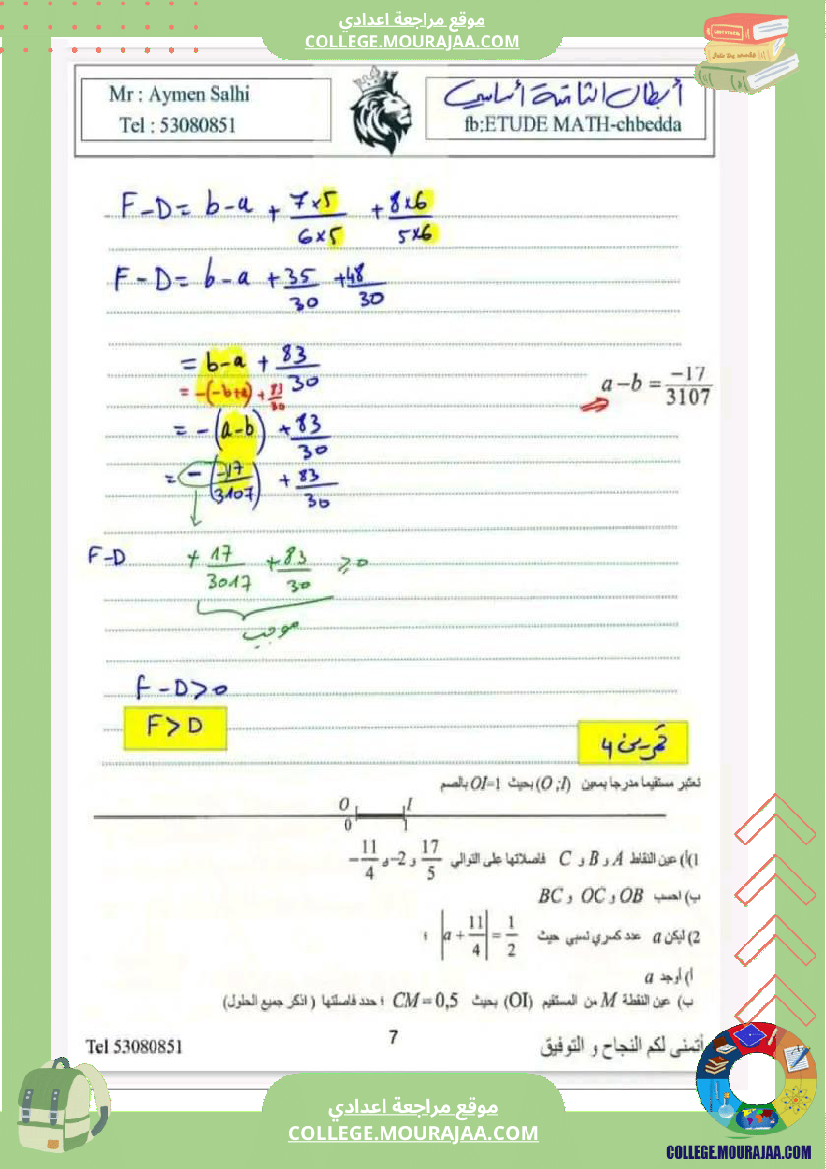 موقع مراجعة اعدادي
COLLEGE.MOURAJAA.COM
Mr : Aymen Salhi
Tel : 53080851
أبطال الثامنة أساسي
fb:ETUDE MATH-chbedda
F-D = b-a + 7×5/6×5 + 8×6/5×6
F-D = b-a + 35/30 + 48/30
= b-a + 83/30
= -(-b+a) + 83/30
a-b = -17/3107
= -(a-b) + 83/30
= -(-17/3107) + 83/30
F-D + 17/3017 + 83/30 ≥0
موجب
F-D>0
F>D
تمرين 4
نعتبر مستقيما مدرجا بمعين (O ;I) بحيث OI=1 بالصم
O I
0 1
1)أ) عين النقاط A و B و C فاصلاتها على التوالي 17/5 و 2- و -11/4
ب) احسب OB و OC و BC
2) ليكن a عدد كسري نسبي حيث |a + 11/4| = 1/2 ؛
أ) أوجد a
ب) عين النقطة M من المستقيم (OI) بحيث CM = 0,5 ؛ حدد فاصلتها ( اذكر جميع الحلول)
Tel 53080851
7
أتمنى لكم النجاح و التوفيق
موقع مراجعة اعدادي
COLLEGE.MOURAJAA.COM
COLLEGE.MOURAJAA.COM